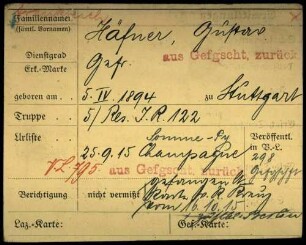 Familienname: Häfner, Gustav
(sämtl. Vornamen)
Dienstgrad Gefr. aus Gefgscht. zurück
Erk.-Marke
geboren am 5. IV. 1894 zu Stuttgart
Truppe 5/ Res. I. R. 122
Urliste Somme-Py Veröffentl.
25-9. 15 Champagne in V.L.
V.L. 795. aus Gefgscht. zurück 298
gefangen
Berichtigung nicht vermißt
vom 16. 10. 15
Laz.-Karte: Gef.-Karte: